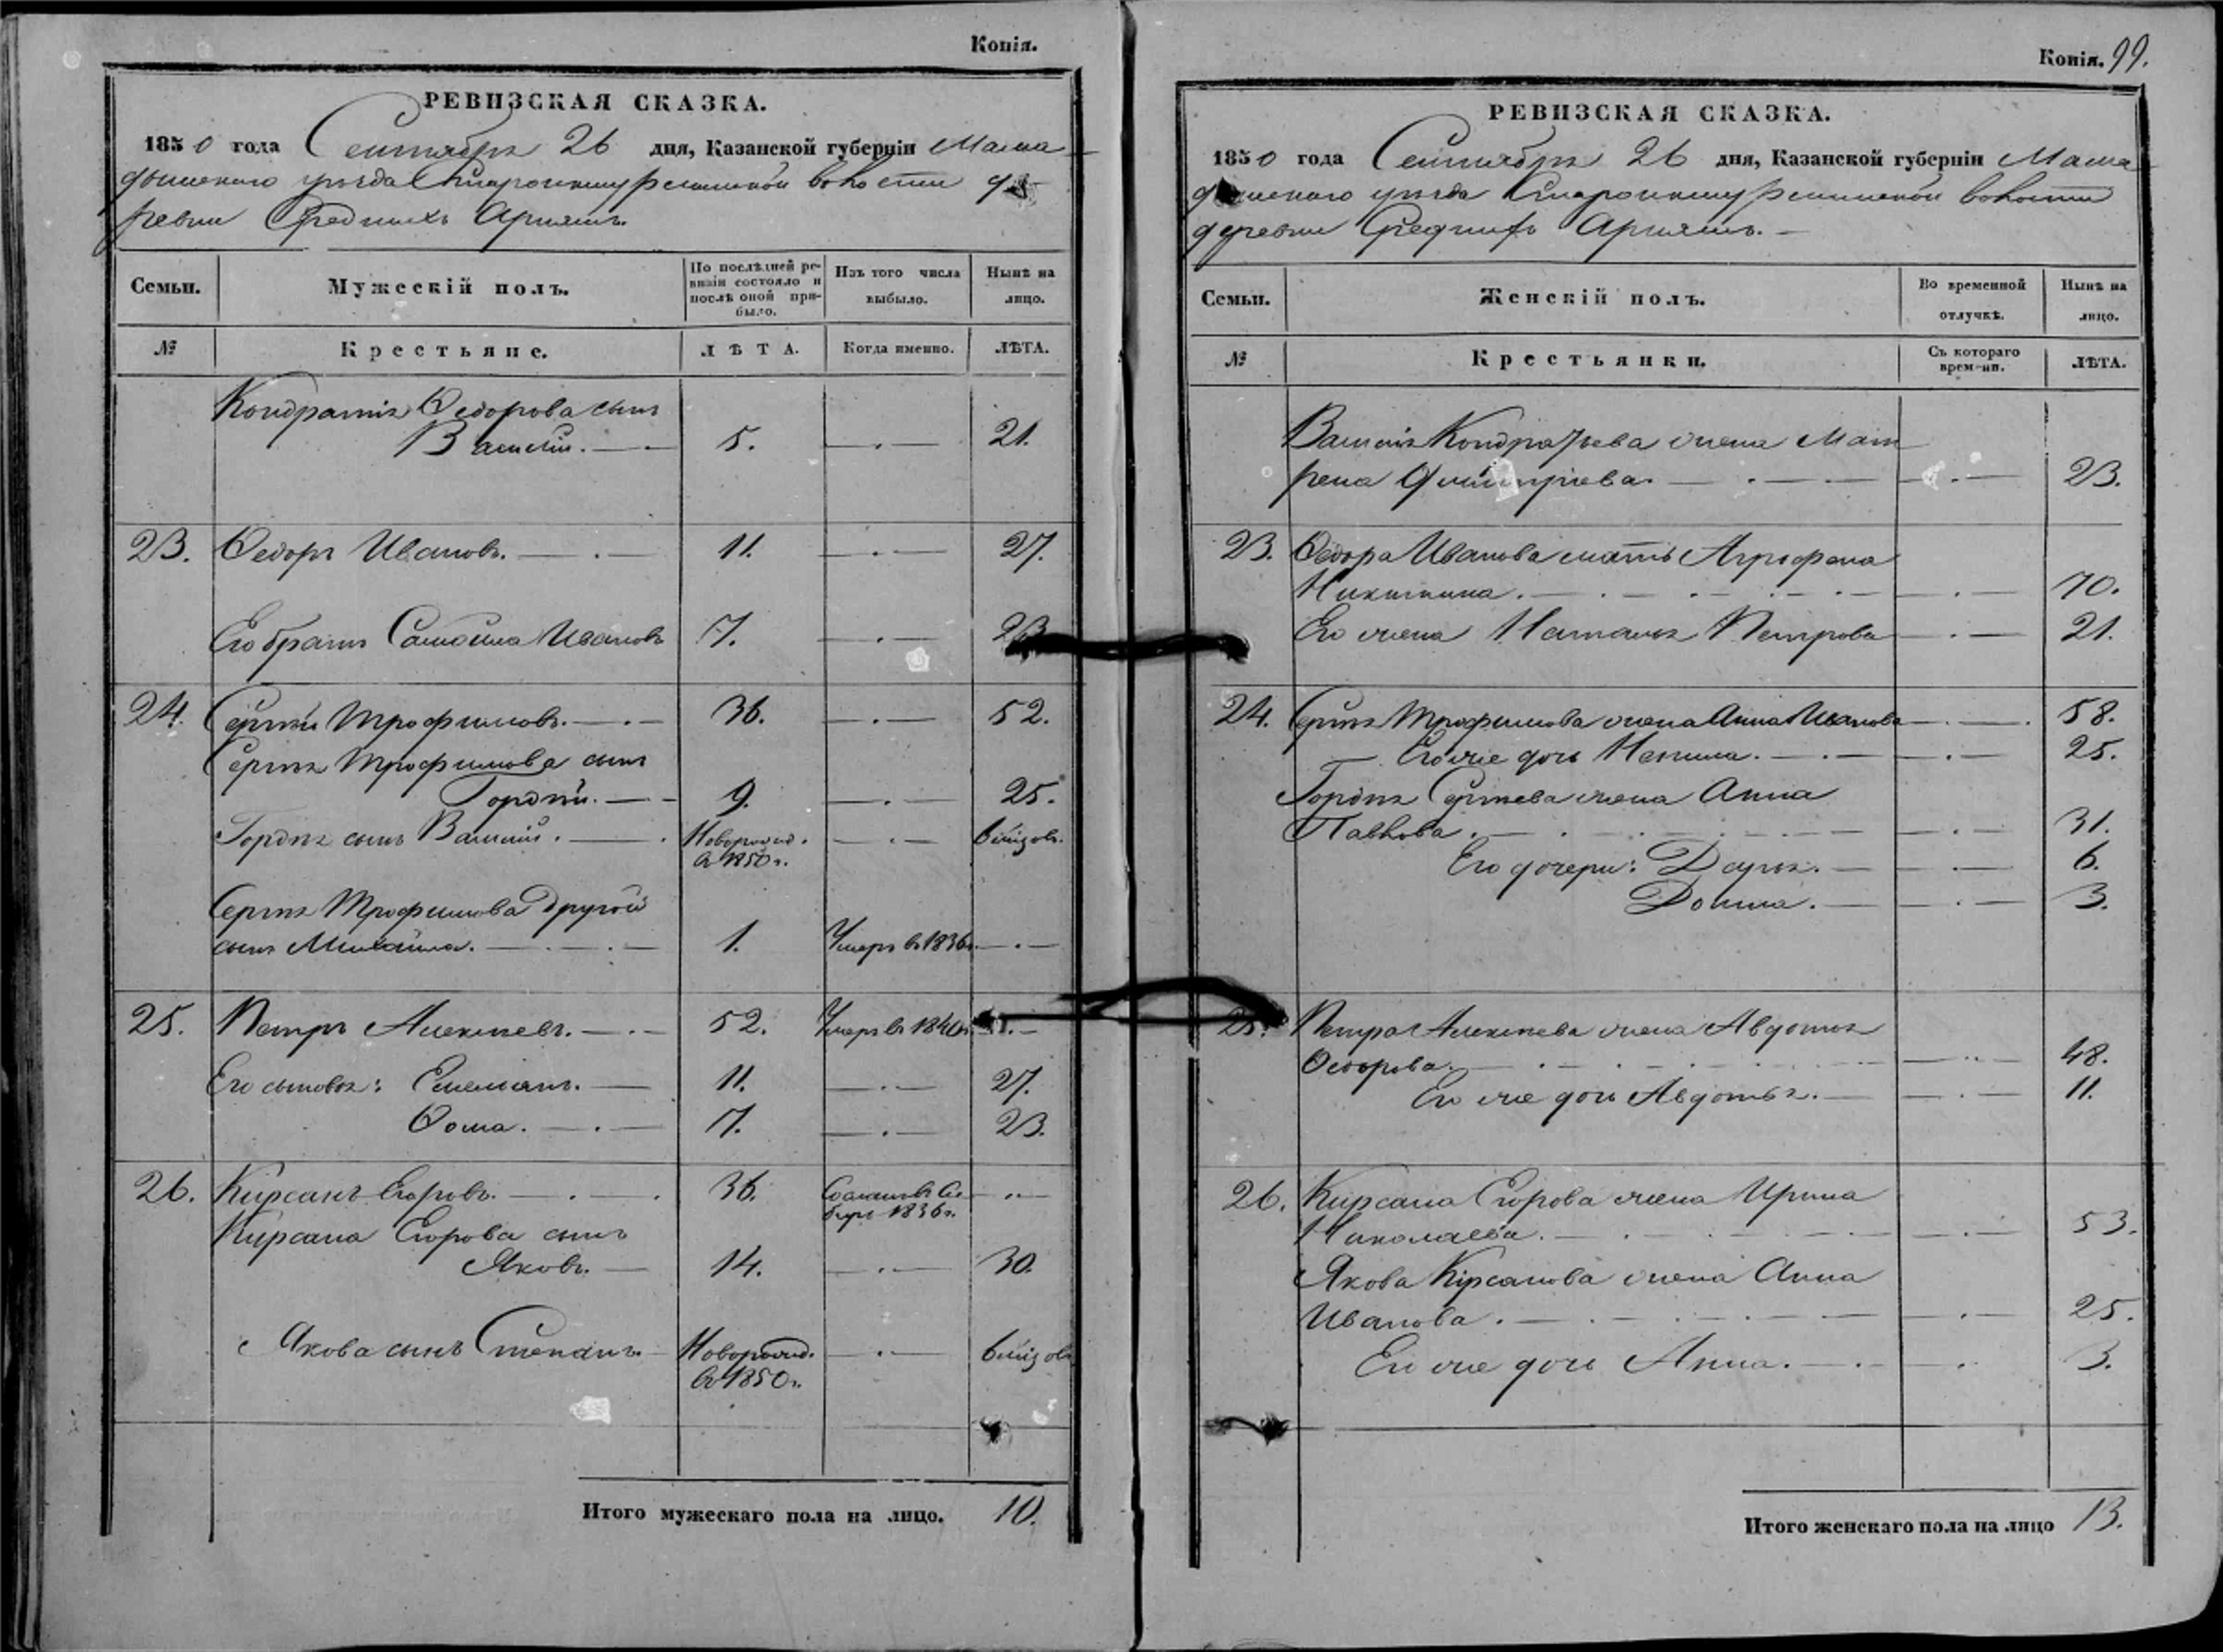 Копія.
РЕВИЗСКАЯ СКАЗКА.
1850 года Сентября 26 дня, Казанской губерніи Мама
дышскаго уѣзда Старокишуремышской волости де
ревни Среднихъ
Семьи.
Мужескій полъ.
По послѣдней ре-
визіи состояло и
послѣ оной при-
было.
Изъ того числа
выбыло.
Нынѣ на
лицо.
№
Крестьяне.
ЛѢТА.
Когда именно.
ЛѢТА.
Кондратія Ѳедорова сынъ
Василій. 5. 21.
23. Ѳедоръ Ивановъ. 11. 27.
Его братъ Самойла Ивановъ 7. 23
24. Сергѣй Трофимовъ. 36. 52.
Сергѣя Трофимова сынъ
Гордѣй. 9. 25.
Гордѣя сынъ Василій. Новорожд. близов.
въ 1850 г.
Сергѣя Трофимова другой
сынъ Михайла. 1. Умеръ въ 1836г.
25. Петръ Алексѣевъ. 52. Умеръ въ 1840г.
Его сыновья: Емельянъ. 11. 27.
Ѳома. 7. 23.
26. Кирсанъ Егоровъ. 36. Сосланъ въ Си
бирь 1836 г.
Кирсана Егорова сынъ
Яковъ. 14. 30.
Якова сынъ Степанъ. Новорожд. близов
въ 1850 г.
Итого мужескаго пола на лицо. 10.
Копія. 99.
РЕВИЗСКАЯ СКАЗКА.
1850 года Сентября 26 дня, Казанской губерніи Мама
дышскаго уѣзда волости
деревни Среднихъ
Семьи.
Женскій полъ.
Во временной
отлучкѣ.
Нынѣ на
лицо.
№
Крестьянки.
Съ котораго
времени.
ЛѢТА.
Василія Кондратьева жена Мат
рена Дмитріева. 23.
23. Ѳедора Иванова мать Агрофена
Никитина. 70.
Его жена Наталья Петрова 21.
24. Сергѣя Трофимова жена Анна Иванова 58.
Его же дочь Ненила. 25.
Гордѣя Сергѣева жена Анна
Павлова. 31.
Его дочери: Дарья. 6.
Домна. 3.
25. Петра Алексѣева жена Авдотья
Ѳедорова. 48.
Его же дочь Авдотья. 11.
26. Кирсана Егорова жена Ирина
Николаева. 53.
Якова Кірсанова жена Анна
Иванова. 25.
Его же дочь Анна. 3.
Итого женскаго пола на лицо 13.